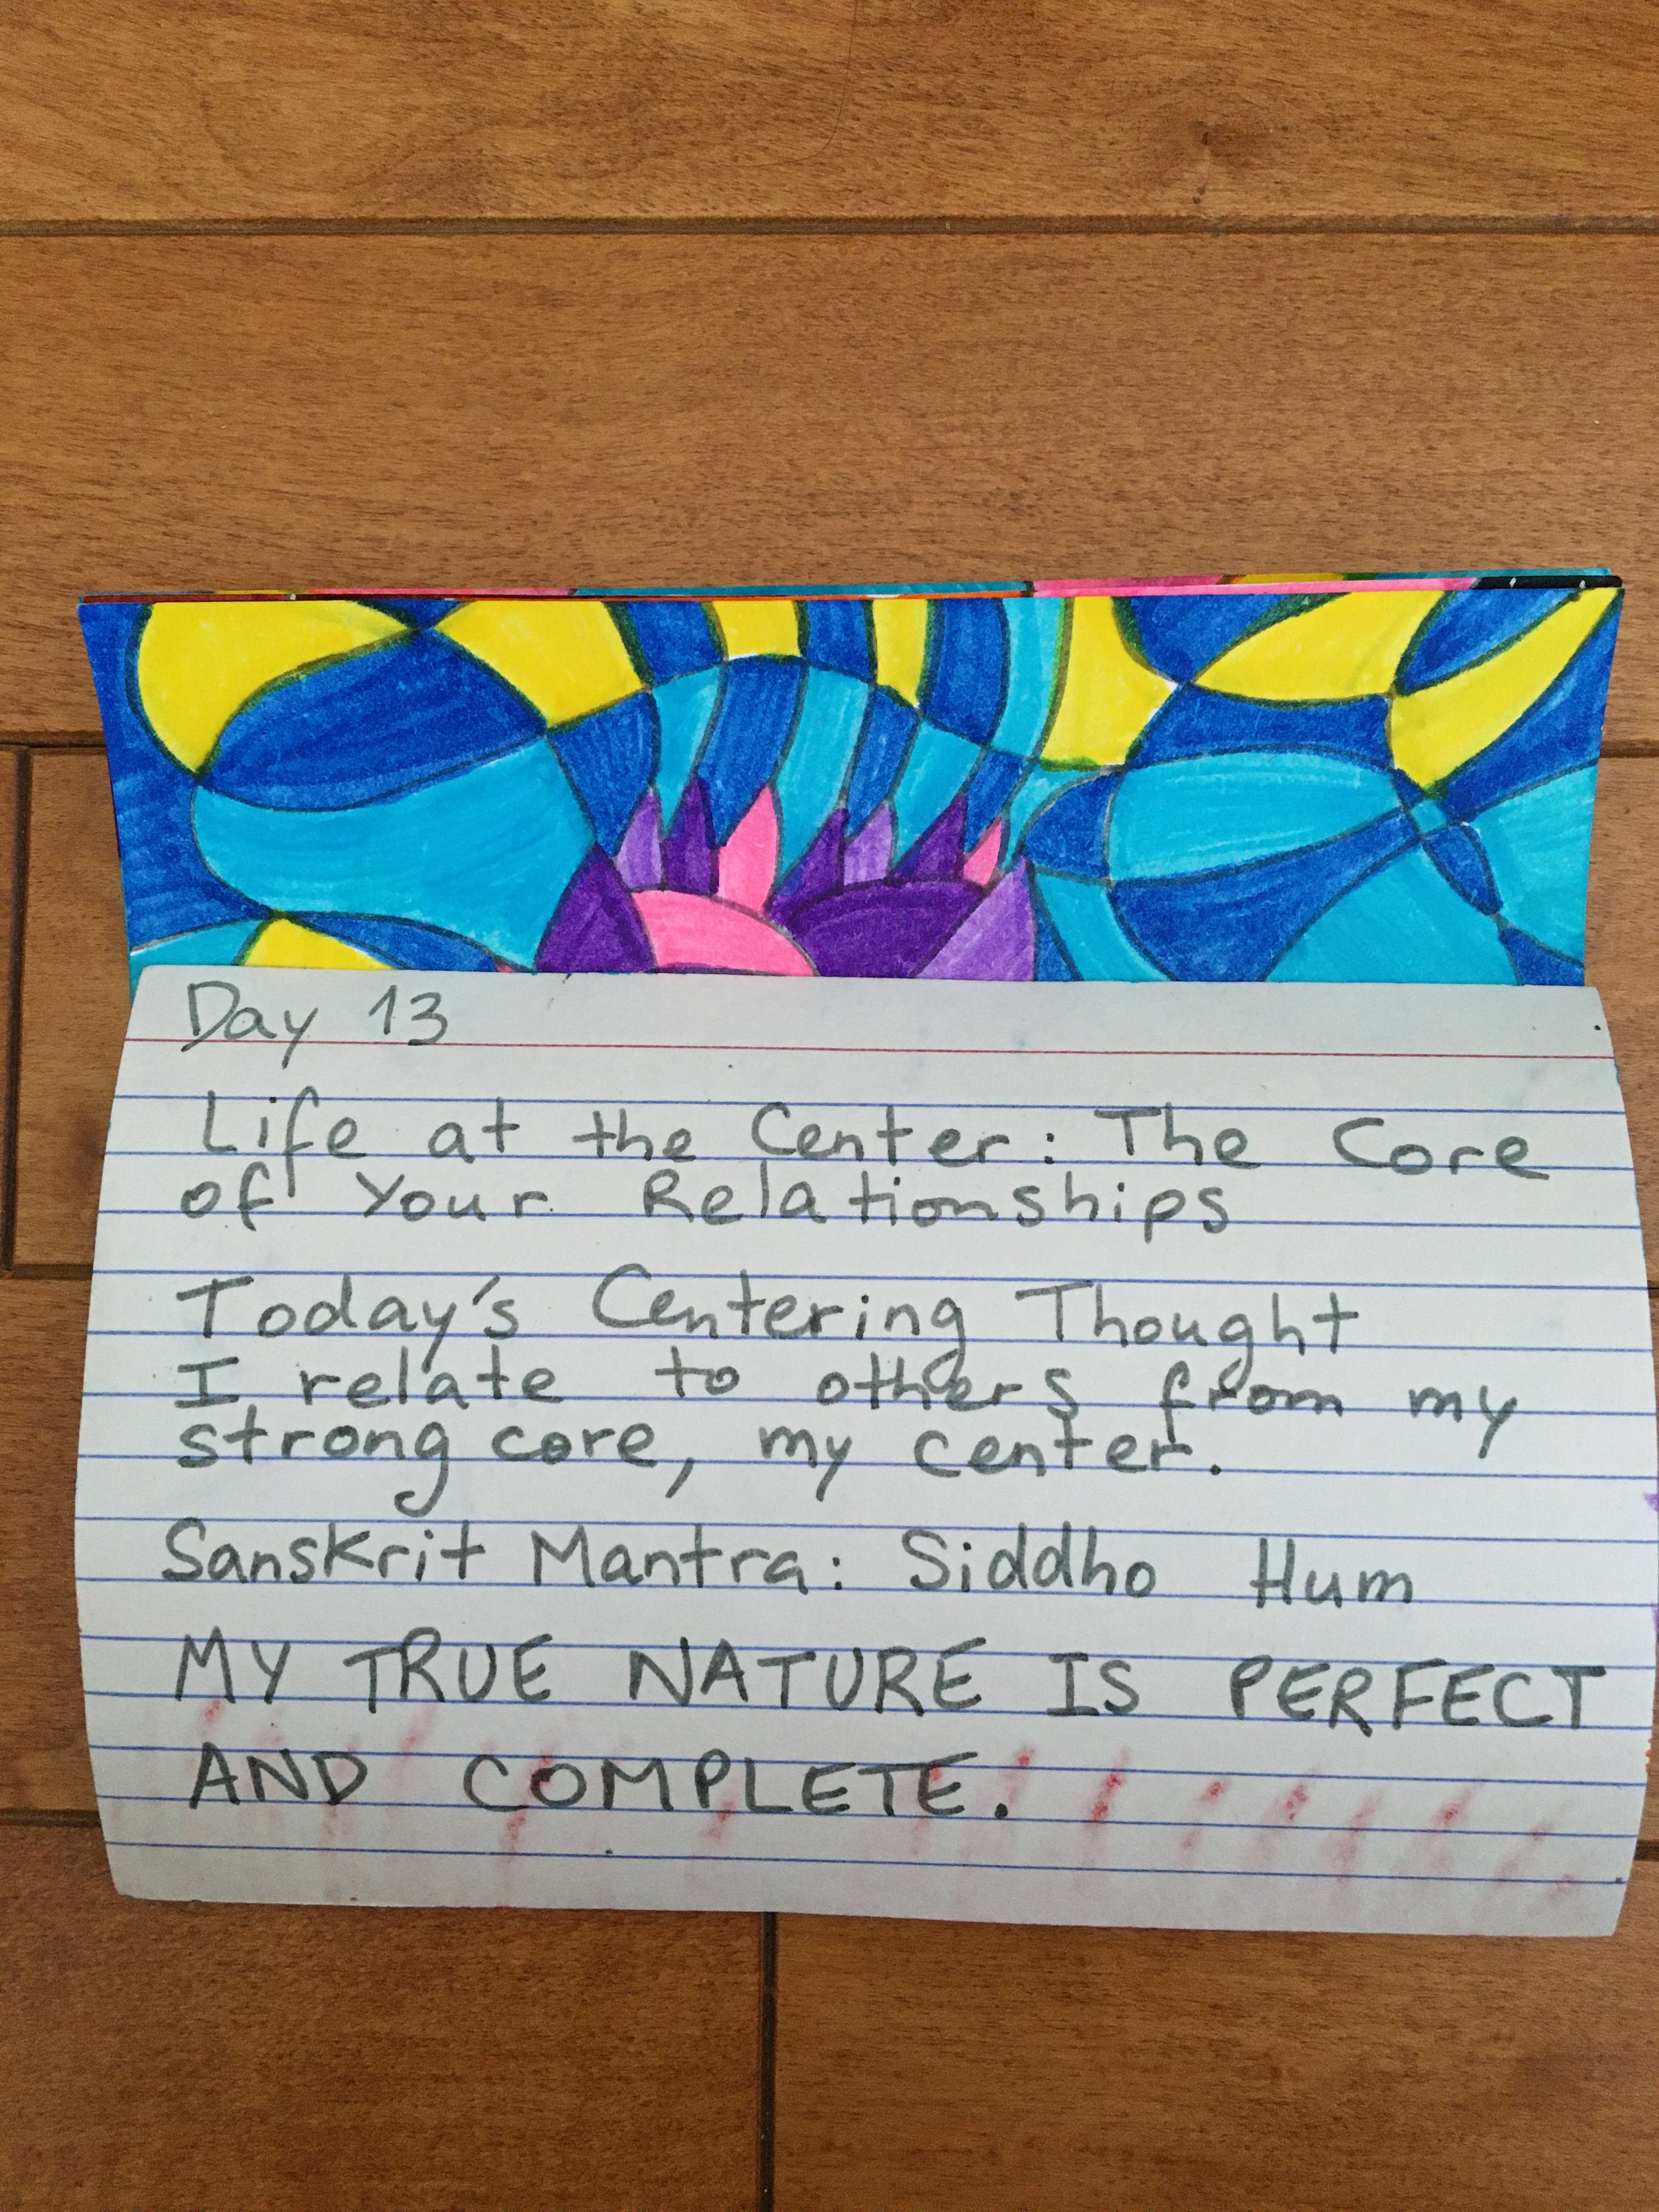 Day 13
Life at the Center: The Core
of Your Relationships
Today's Centering Thought
I relate to others from my
strong core, my center.
Sanskrit Mantra: Siddho Hum
MY TRUE NATURE IS PERFECT
AND COMPLETE.